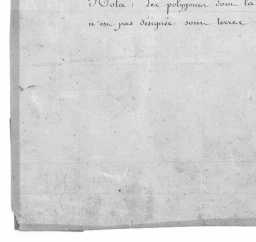 Nota : les polygones dont la
n'est pas designée sont terres